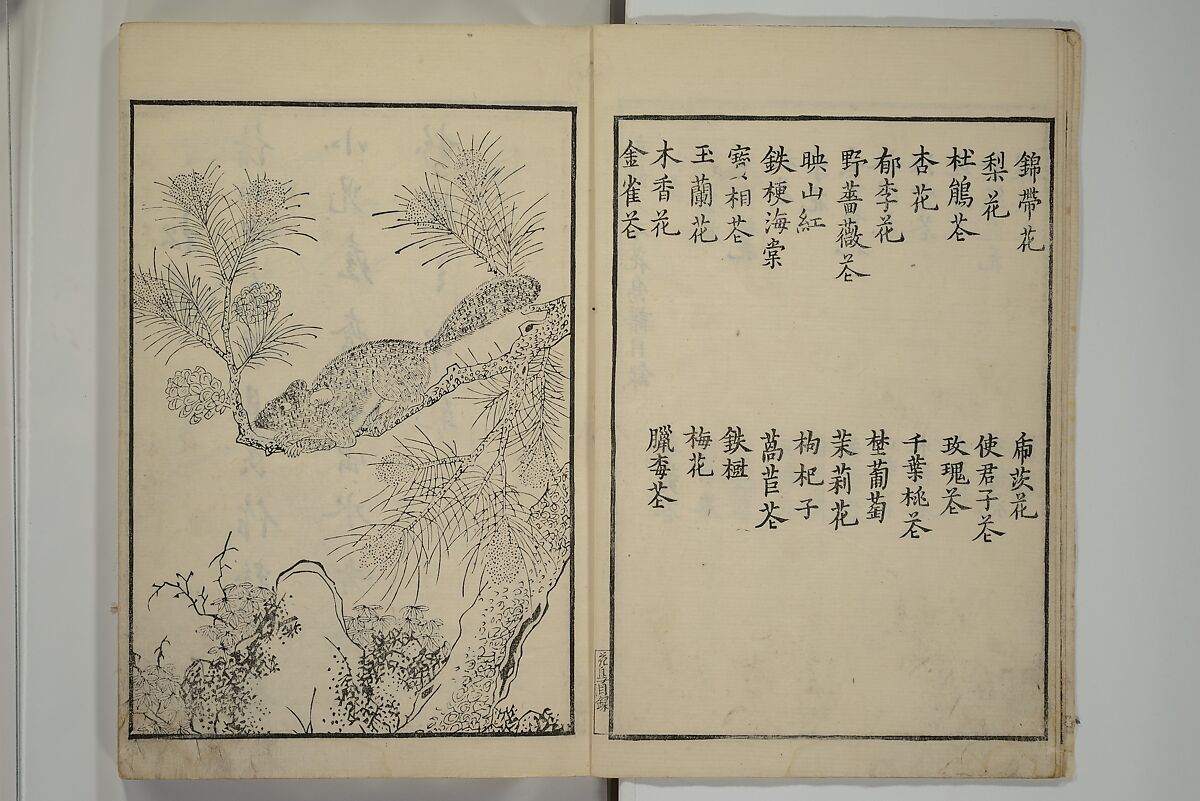 錦帶花
梨花
杜鵑花
杏花
郁李花
野薔薇花
映山紅
鉄梗海棠
寳相花
玉蘭花
木香花
金雀花
茨花
使君子花
玫瑰花
千葉桃花
埜葡萄
茉莉花
枸杞子
萵苣花
鉄樹
梅花
臘梅花
花鳥目録